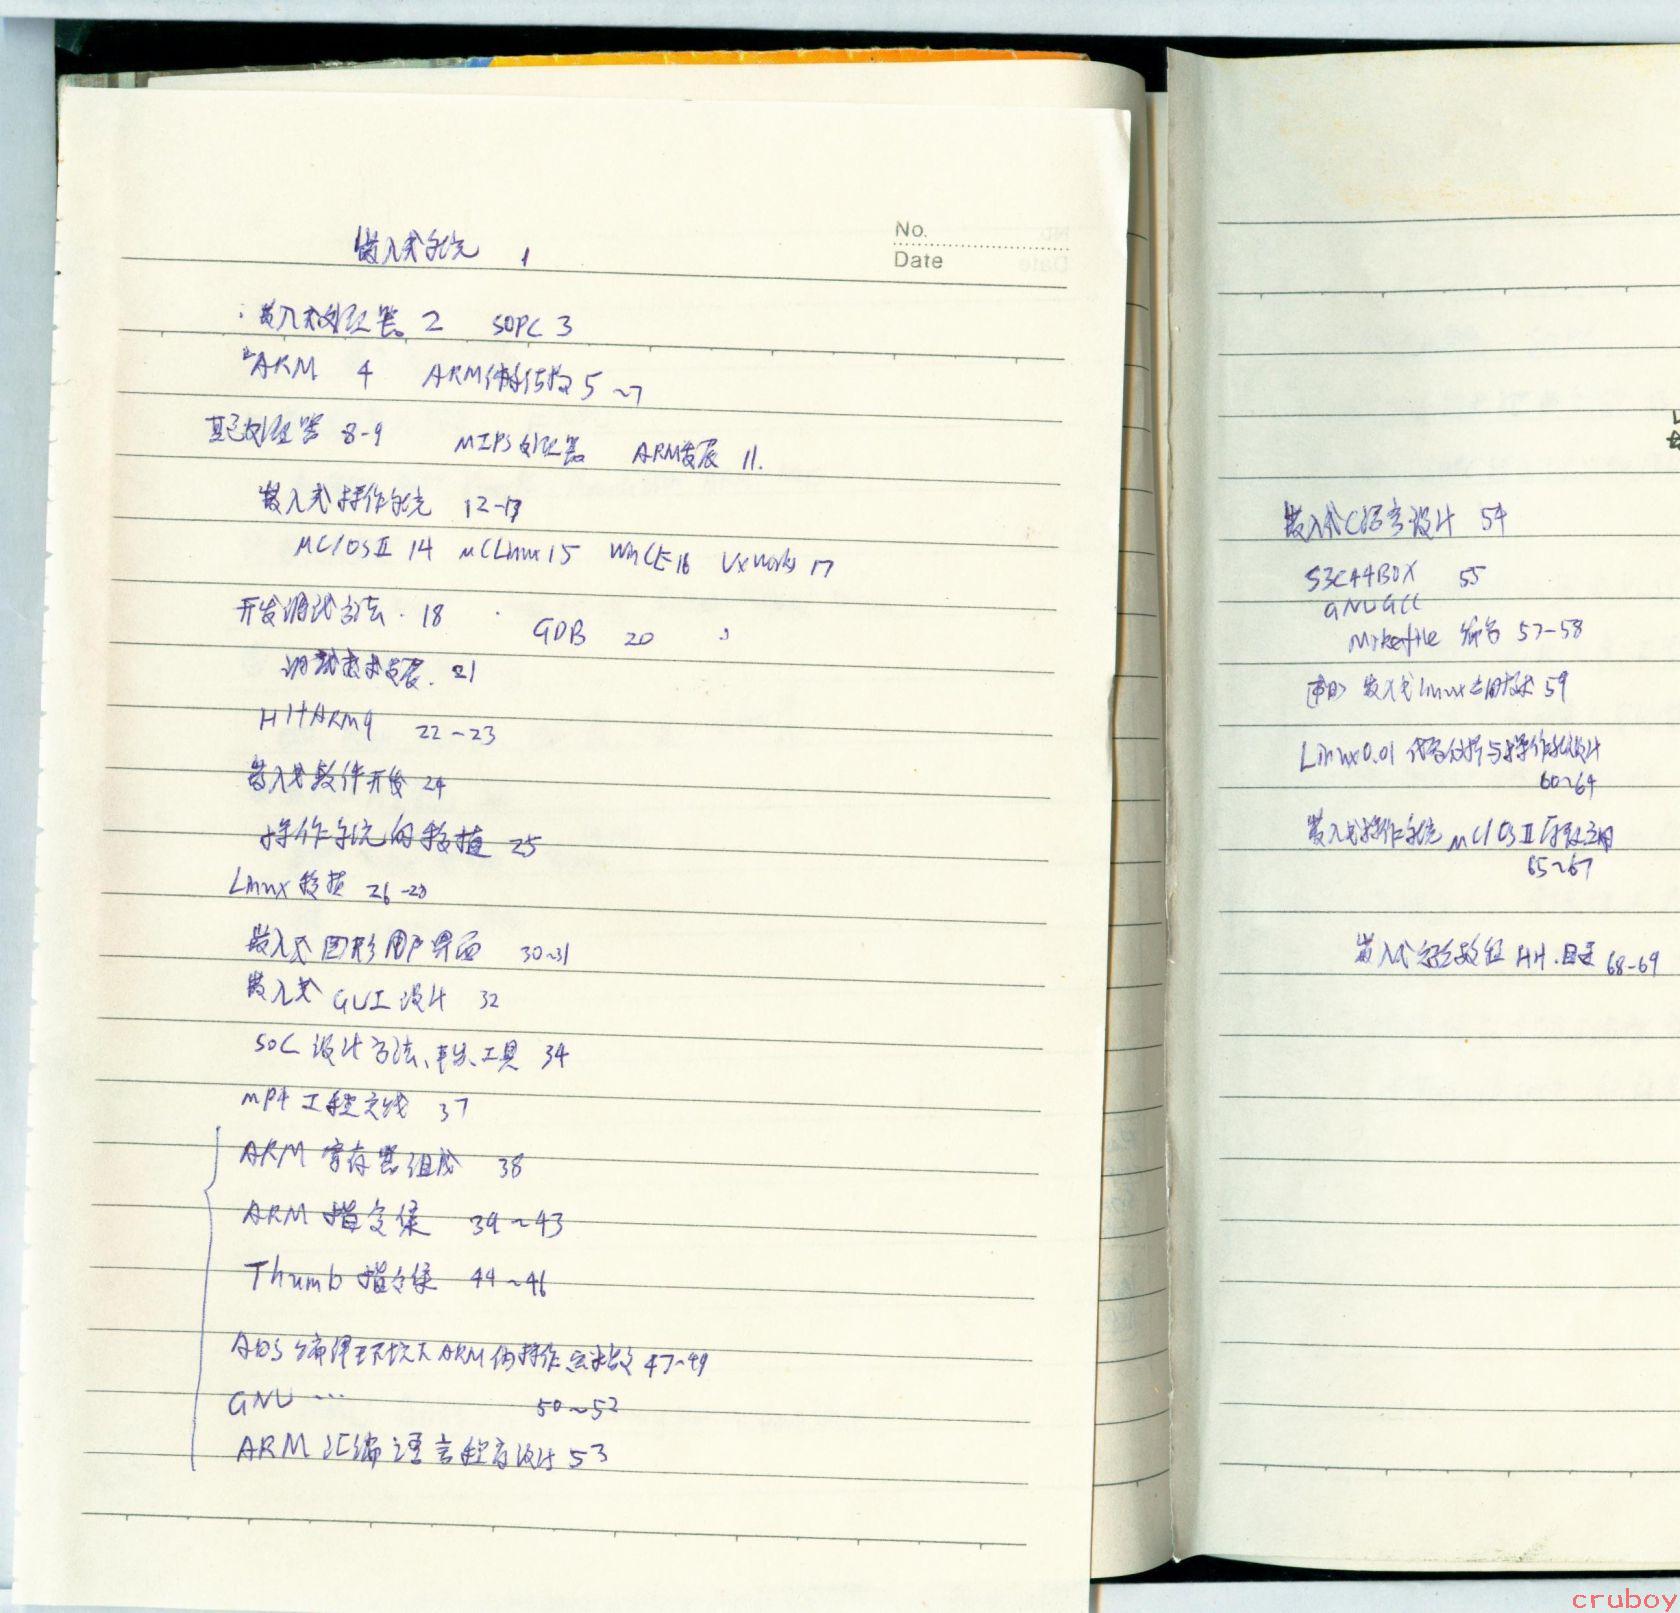 No.
Date
嵌入式系统 1
嵌入式处理器 2 SOPC 3
ARM 4 ARM体系结构 5~7
其它处理器 8-9 MIPS处理器 ARM发展 11.
嵌入式操作系统 12-13
μC/OSⅡ 14 μCLinux 15 WinCE 16 VxWorks 17
开发调试方法 18 GDB 20
调试技术发展. 21
ARM9 22~23
嵌入式软件开发 24
操作系统的移植 25
Linux 移植 26-28
嵌入式图形用户界面 30~31
嵌入式 GUI 设计 32
SOC 设计方法、平台、工具 34
mp4 工程文线 37
ARM 寄存器组成 38
ARM 指令集 39~43
Thumb 指令集 44~46
ADS 编译环境下ARM伪操作 47~49
GNU ... 50~52
ARM 汇编语言程序设计 53
嵌入式C语言设计 54
S3C44B0X 55
GNU GCC
Makefile 编写 57-58
嵌入式Linux应用技术 59
Linux0.01 代码分析与操作系统设计
60~64
嵌入式操作系统 μC/OSⅡ 原理应用
65~67
嵌入式实验教程 目录 68-69
cruboy